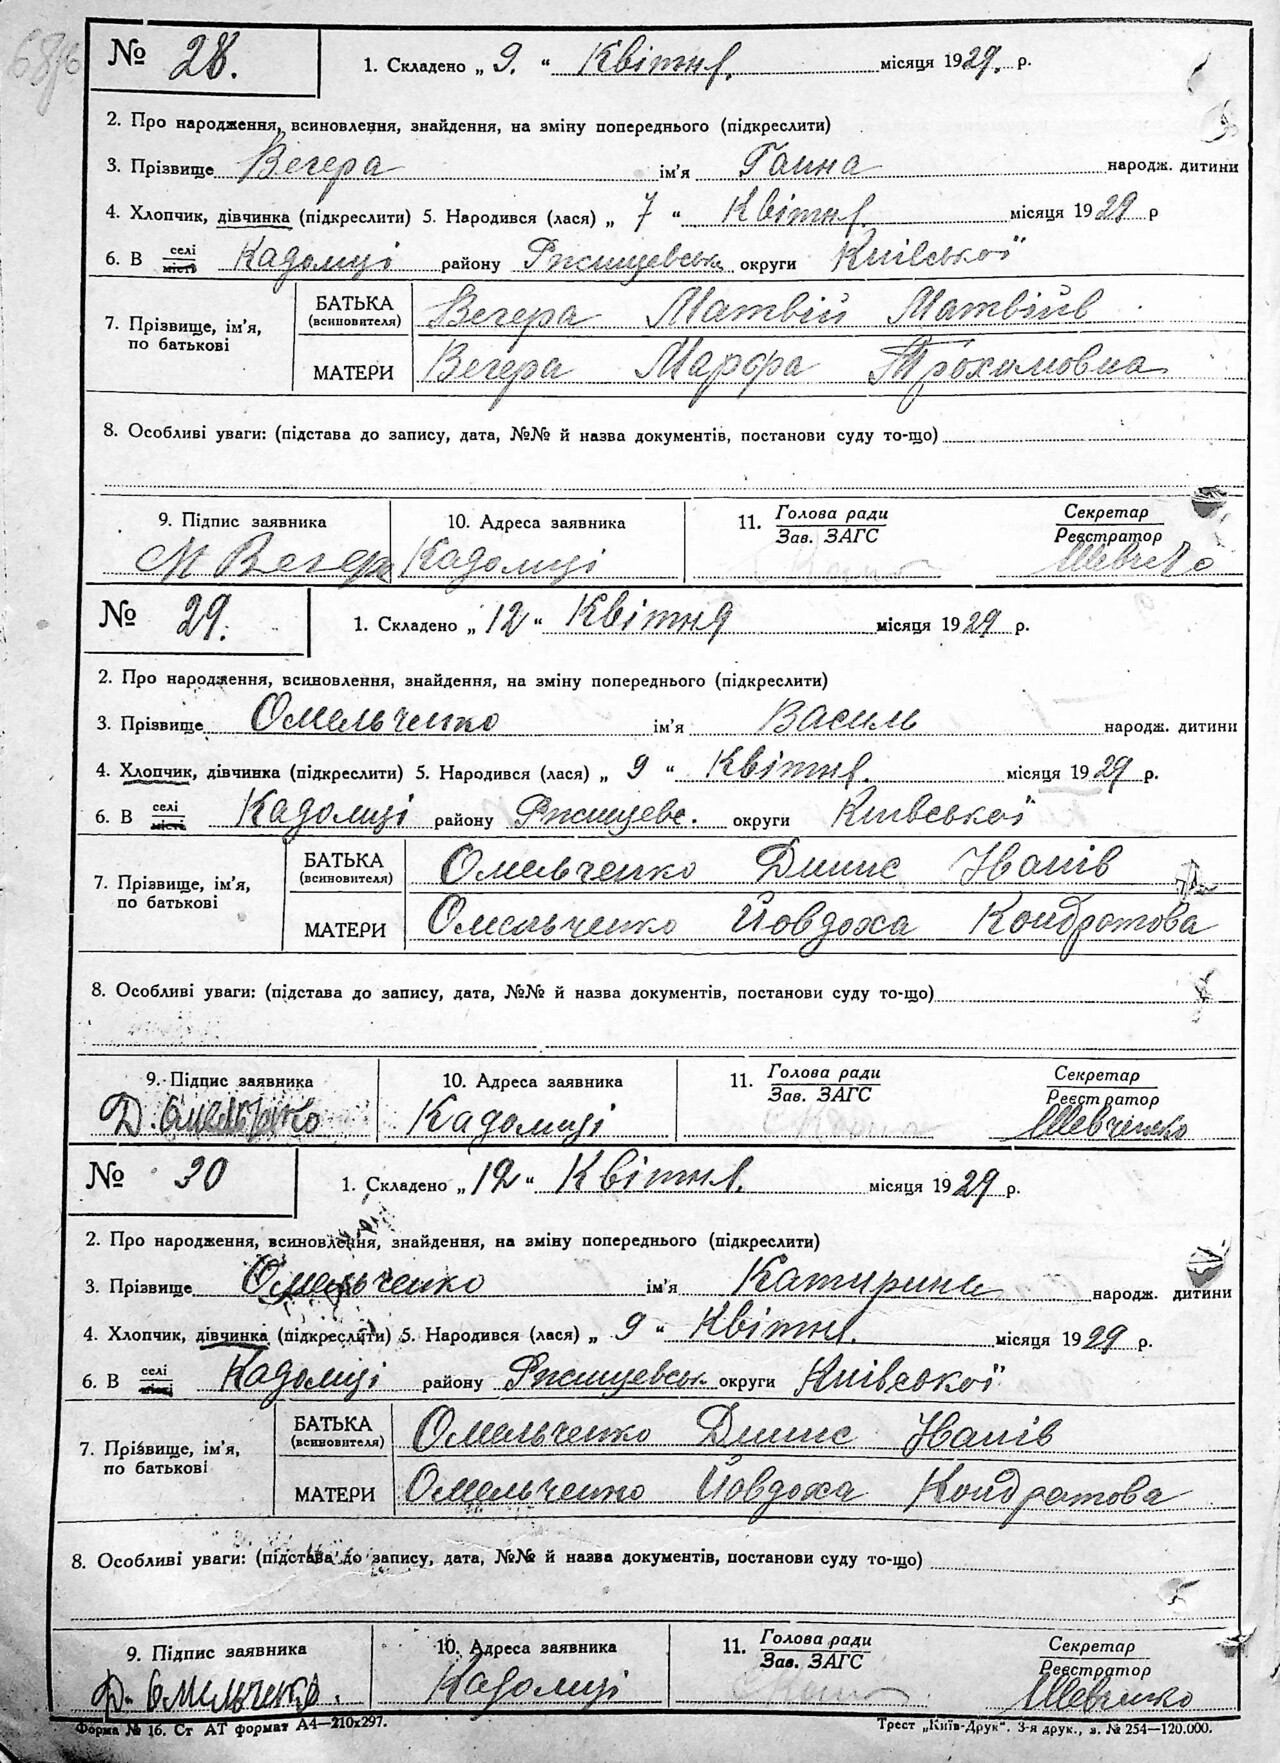 № 28. 1. Складено „ 9. “ Квітня. місяця 1929. р.
2. Про народження, всиновлення, знайдення, на зміну попереднього (підкреслити)
3. Прізвище Вегера ім'я Ганна народж. дитини
4. Хлопчик, дівчинка (підкреслити) 5. Народився (лася) „ 7 “ Квітня місяця 1929 р
6. В селі/місті Кадомці району Ржищевськ округи Київської
7. Прізвище, ім'я, по батькові
БАТЬКА (всиновителя) Вегера Матвій Матвійв
МАТЕРИ Вегера Марфа Трохимовна
8. Особливі уваги: (підстава до запису, дата, №№ й назва документів, постанови суду то-що)
9. Підпис заявника 10. Адреса заявника 11. Голова ради Зав. ЗАГС Секретар Реєстратор
М Вегера Кадомці Шевченко
№ 29. 1. Складено „ 12 “ Квітня місяця 1929 р.
2. Про народження, всиновлення, знайдення, на зміну попереднього (підкреслити)
3. Прізвище Омельченко ім'я Василь народж. дитини
4. Хлопчик, дівчинка (підкреслити) 5. Народився (лася) „ 9 “ Квітня. місяця 1929 р.
6. В селі/місті Кадомці району Ржищевс. округи Київської
7. Прізвище, ім'я, по батькові
БАТЬКА (всиновителя) Омельченко Динис Нанів
МАТЕРИ Омельченко Йовдоха Кондратова
8. Особливі уваги: (підстава до запису, дата, №№ й назва документів, постанови суду то-що)
9. Підпис заявника 10. Адреса заявника 11. Голова ради Зав. ЗАГС Секретар Реєстратор
Д. Омельченко Кадомці Шевченко
№ 30 1. Складено „ 12 “ Квітня. місяця 1929 р.
2. Про народження, всиновлення, знайдення, на зміну попереднього (підкреслити)
3. Прізвище Омельченко ім'я Катирина народж. дитини
4. Хлопчик, дівчинка (підкреслити) 5. Народився (лася) „ 9 “ Квітня. місяця 1929 р.
6. В селі/місті Кадомці району Ржищевськ округи Київської
7. Прізвище, ім'я, по батькові
БАТЬКА (всиновителя) Омельченко Динис Нанів
МАТЕРИ Омельченко Йовдоха Кондратова
8. Особливі уваги: (підстава до запису, дата, №№ й назва документів, постанови суду то-що)
9. Підпис заявника 10. Адреса заявника 11. Голова ради Зав. ЗАГС Секретар Реєстратор
Д. Омельченко. Кадомці Шевченко
Форма № 16. Ст АТ формат А4—210х297. Трест „Київ-Друк“. 3-я друк., з. № 254—120.000.